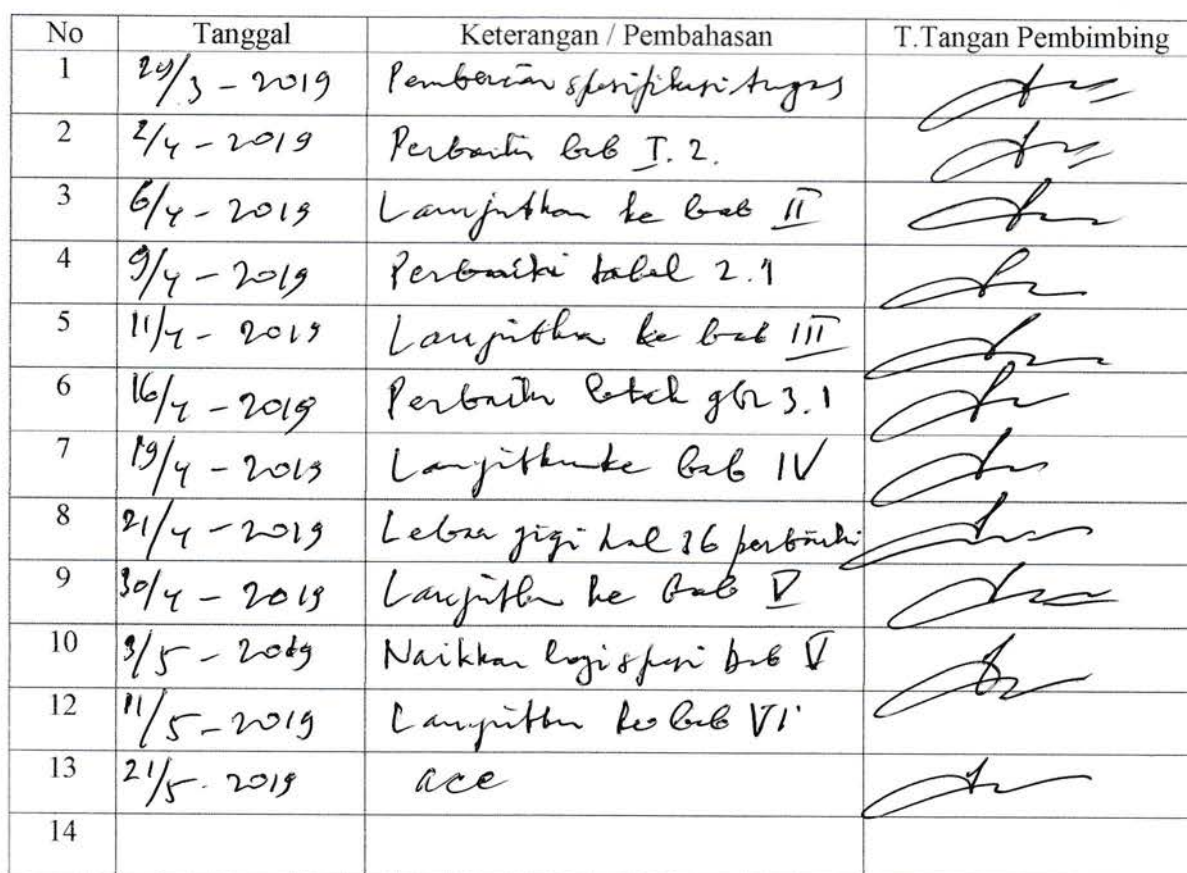 No Tanggal Keterangan / Pembahasan T.Tangan Pembimbing
1 29/3 - 2019 Pemberian spesifikasi tugas
2 2/4 - 2019 Perbaiki bab I. 2.
3 6/4 - 2019 Lanjutkan ke bab II
4 9/4 - 2019 Perbaiki tabel 2.1
5 11/4 - 2019 Lanjutkan ke bab III
6 16/4 - 2019 Perbaiki letak gbr 3.1
7 19/4 - 2019 Lanjutkan ke bab IV
8 21/4 - 2019 Lebar gigi hal 36 perbaiki
9 30/4 - 2019 Lanjutkan ke bab V
10 3/5 - 2019 Naikkan lagi bab V
12 11/5 - 2019 Lanjutkan ke bab VI
13 21/5 - 2019 acc
14